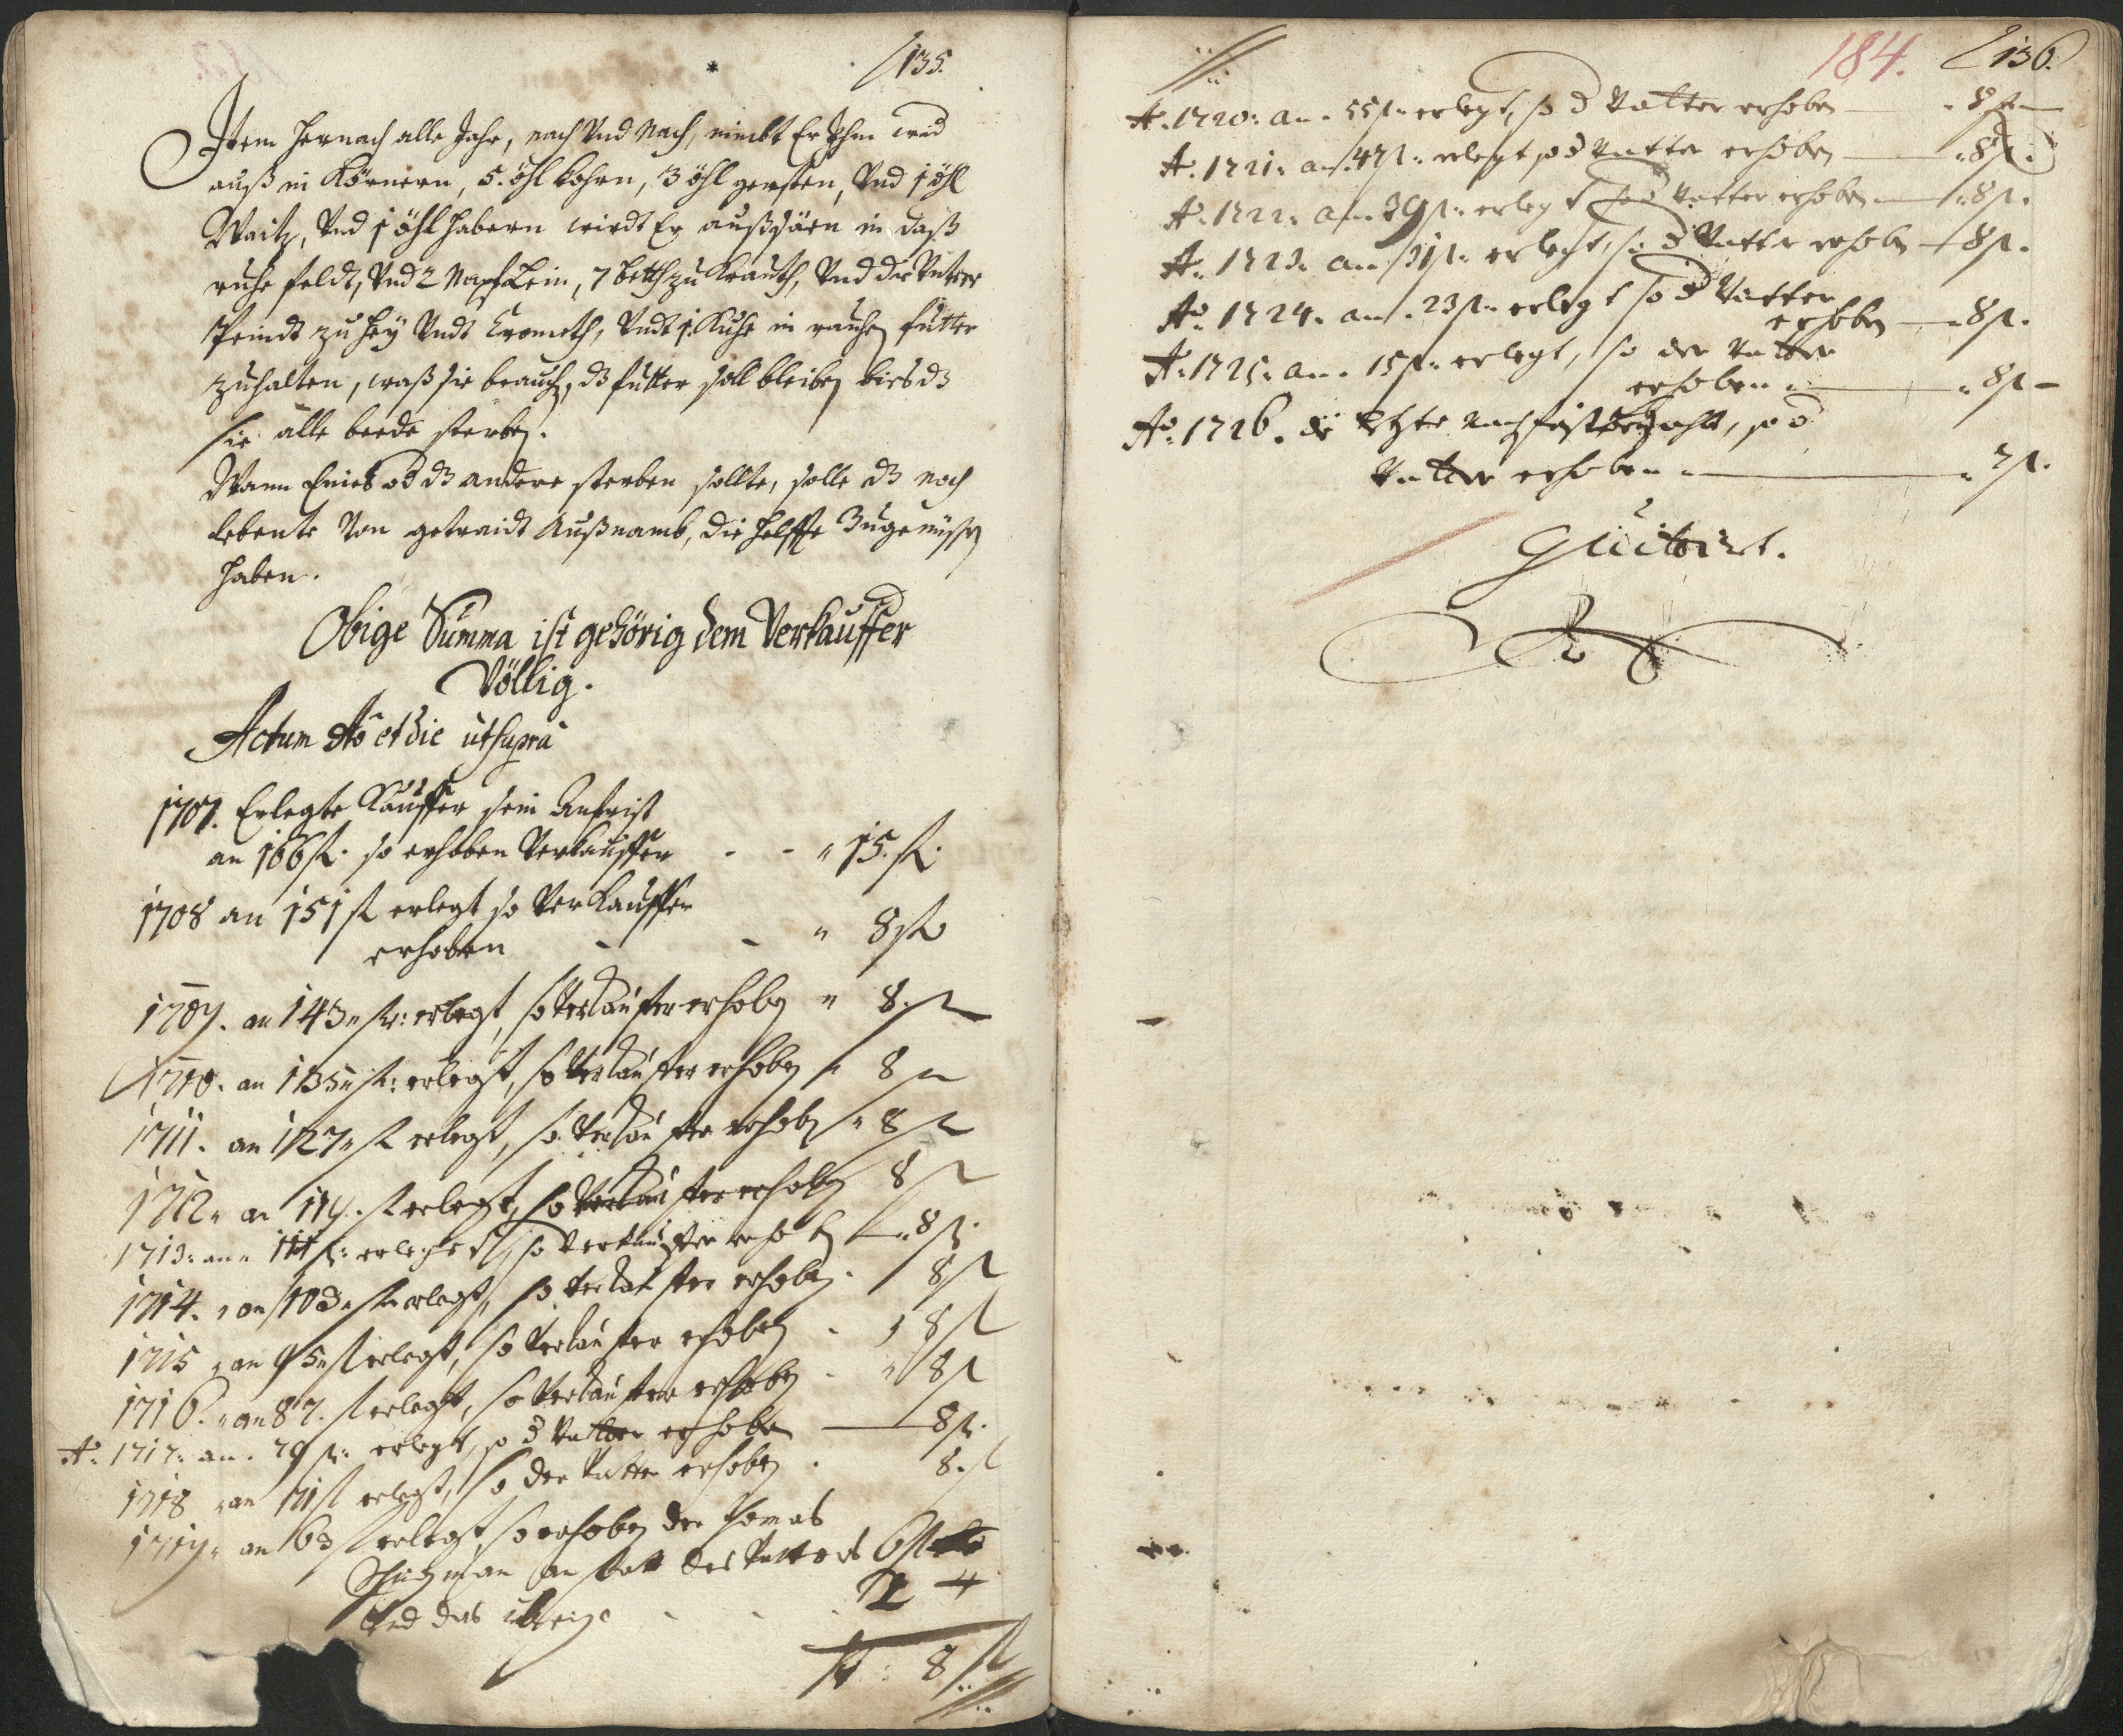 135.
Item hernach alle Jahr, nach Vnd Nach, nimbt Er Ihm
auß in Körnern, 5. öhl kohrn, 3 öhl gersten, Vnd 1 öhl
Waitz, Vnd 1 öhl habern wirdt Er außsäen in daß
ruhe feldt, Vnd 2 Napf Lein, 7 betth zu Krauth, Vnd die Vntere
Peindt zu hey Vndt Grometh, Vndt 1. Kuhe in rauhen futter
zuhalten, waß sie brauch, dz futter soll bleiben bies dz
sie alle beede sterben.
Wann Eines od dz andere sterben sollte, solle dz noch
lebente Von getraidt Außnamb, die helffte Zugenüssen
haben.
Obige Summa ist gehörig dem Verkauffer
Völlig.
Actum Ao et die ut supra
1707. Erlegte Kauffer sein Anfrist
an 166 fl. so erhoben Verkauffer - - " 15. fl.
1708 an 151 fl erlegt so Verkauffer
erhoben - - " 8 fl
1709. an 143 " fl: erlegt, so Verkauffer erhoben " 8. fl
1710. an 135 " fl: erlegt, so Verkauffer erhoben " 8 fl
1711. an 127 " fl erlegt, so Verkauffer erhoben " 8 fl
1712 " an 119. fl erlegt, so Verkauffer erhoben 8 fl
1713: an " 111 fl: erlegt, so Verkauffer erhoben " 8 fl.
1714. " an 103 " fl erlegt, so Verkauffer erhoben. 8 fl
1715 " an 95 " fl erlegt, so Verkauffer erhoben - " 8 fl
1716. " an 87. fl erlegt, so Verkauffer erhoben - " 8 fl
Ao: 1717: an. 79 fl: erlegt, so d Vatter erhoben — 8 fl.
1718 " an 71 fl erlegt, so der Vatter erhoben. 8. fl
1719 " an 63 fl erlegt, so erhoben der Thomas
an statt des Vatters 6 fl
Vnd das übrige - - 2
fl : 8 fl
184. 136.
Ao. 1720: an. 55 fl: erlegt, so d Vatter erhoben — " 8 fl —
Ao. 1721: an. 47 fl: erlegt so d Vatter erhoben — " 8 fl.
Ao: 1722: an. 39 fl: erlegt so d Vatter erhoben — " 8 fl.
Ao: 1723: an. 31 fl: erlegt, so d Vatter erhoben — 8 fl.
Ao: 1724. an. 23 fl: erlegt so d Vatter
erhoben — " 8 fl.
Ao: 1725: an. 15 fl: erlegt, so der Vatter
erhoben " — " 8 fl —
Ao: 1726. die letzte nachfrist bezahlt, so d
Vatter erhoben " — " 7 fl.
Quitirt.